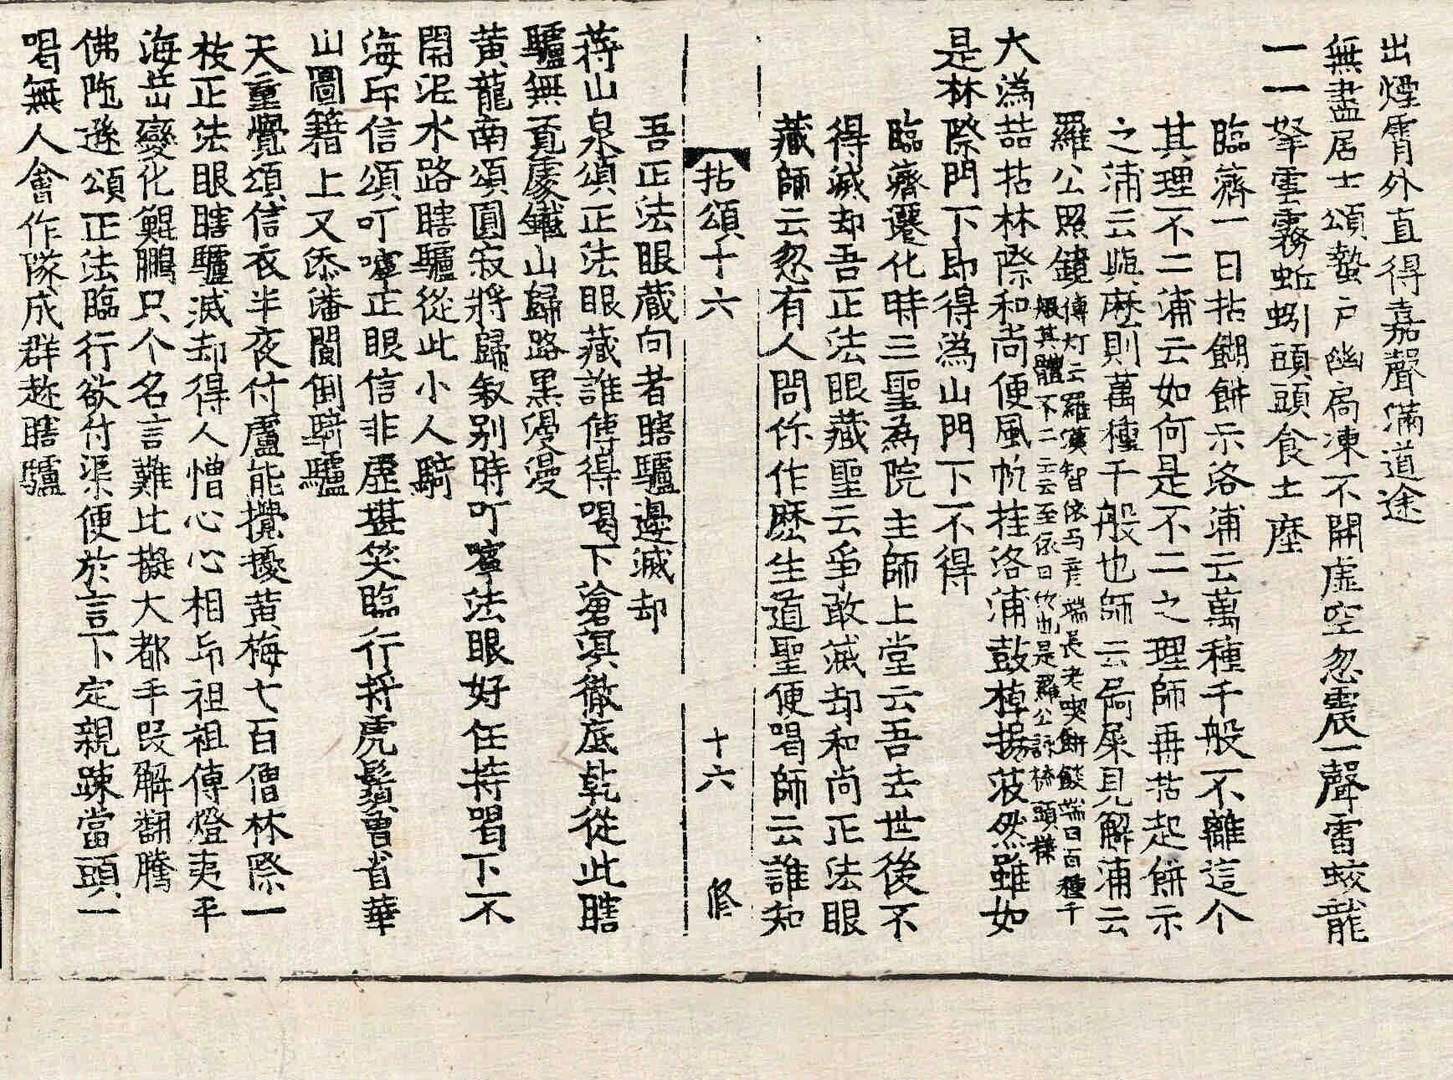 出煙霄外直得嘉聲滿道途
無盡居士頌蟄戶幽扃凍不開虛空忽震一聲雷蛟龍
一一拏雲霧蚯蚓頭頭食土麼
臨薺一日拈餬餅示洛浦云萬種千般不離這个
其理不二浦云如何是不二之理師再拈起餅示
之浦云與麽則萬種千般也師云屙屎見解浦云
羅公照鏡
傳灯云羅漢智依与彦端長老喫餅餤端曰百種千
般其體不二云云至依曰此也是羅公詠梳頭樣
大溈喆拈林際和尚便風帆挂洛浦鼓棹揚波然雖如
是林際門下即得溈山門下不得
臨薺遷化時三聖為院主師上堂云吾去世後不
得滅却吾正法眼藏聖云爭敢滅却和尚正法眼
藏師云忽有人問你作麽生道聖便喝師云誰知
拈頌十六 十六 修
吾正法眼藏向者瞎驢邊滅却
蔣山泉頌正法眼藏誰傳得喝下滄溟徹底乾從此瞎
驢無覓處鐵山歸路黑漫漫
黃龍南頌圓寂將歸敘别時叮嚀法眼好任持喝下不
開泥水路瞎驢從此小人騎
海印信頌叮嚀正眼信非虛堪笑臨行捋虎鬚曾省華
山圖籍上又添潘閬倒騎驢
天重覺頌信衣半夜付盧能攪擾黃梅七百僧林際一
枝正法眼瞎驢滅却得人憎心心相印祖祖傳燈夷平
海岳變化鯤鵬只个名言難比擬大都手段解翻騰
佛陁遜頌正法臨行欲付渠便於言下定親踈當頭一
喝無人會作隊成群趂瞎驢